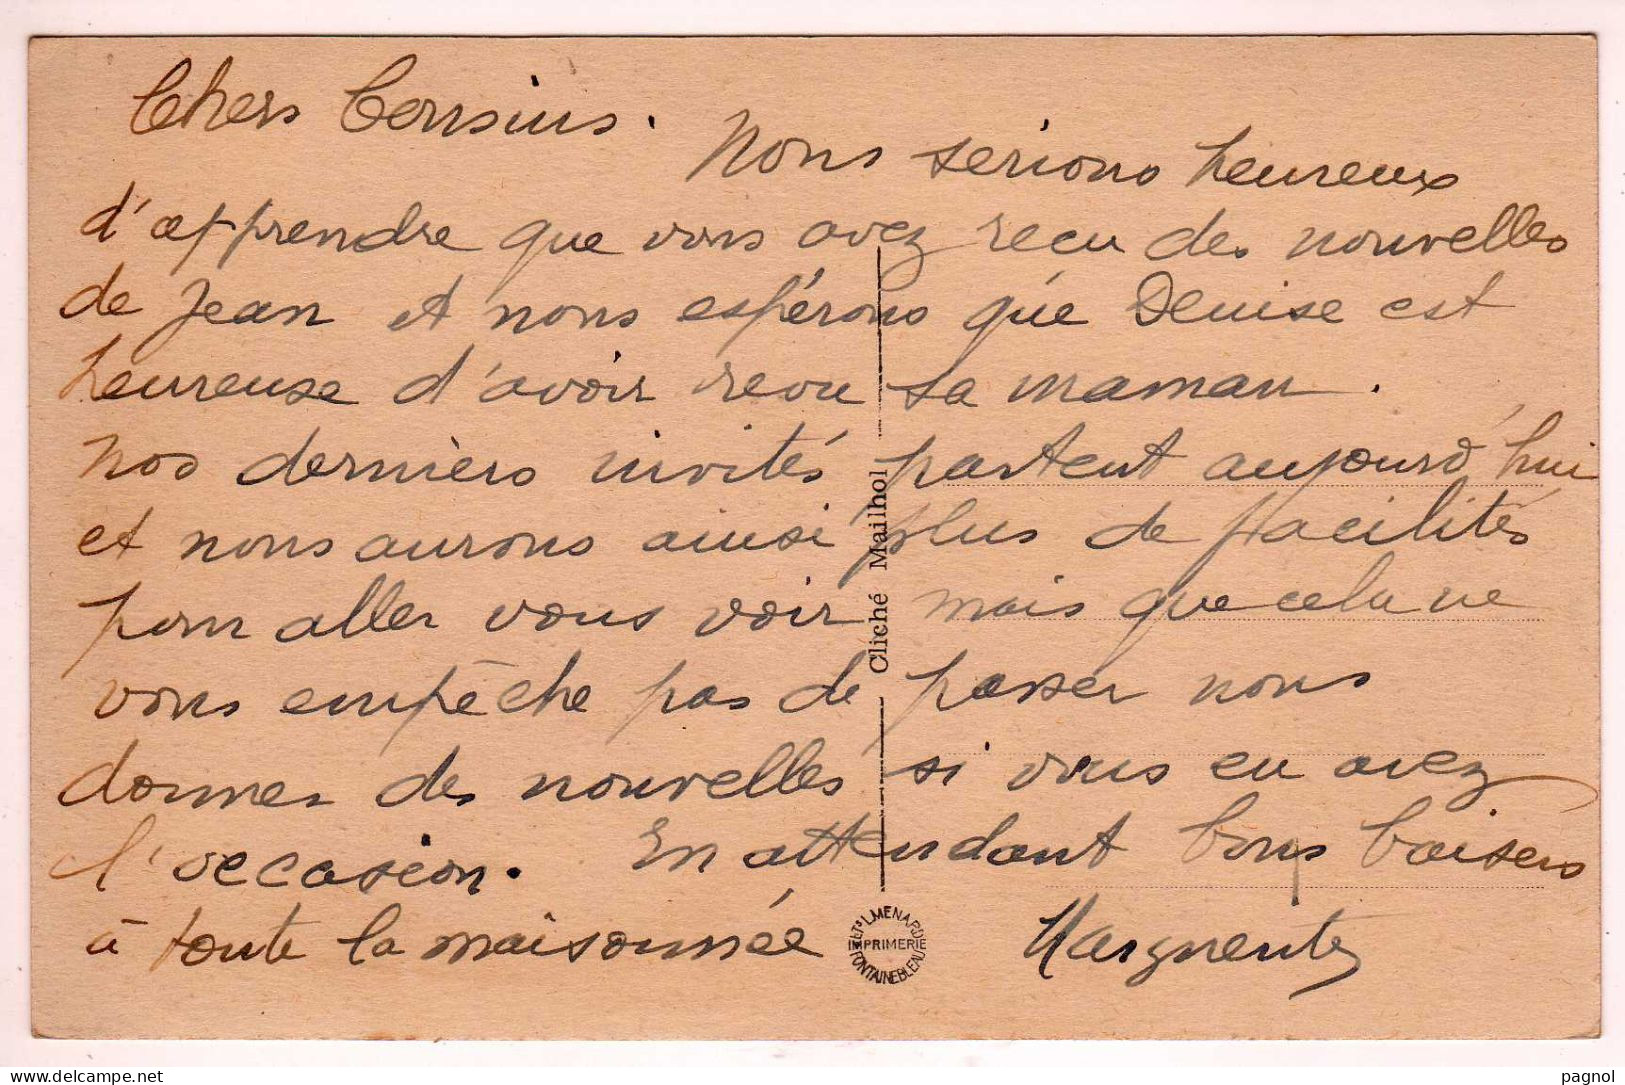 Chers Cousins.
Nous serions heureux
d'apprendre que vous avez recu des nouvelles
de Jean et nous espérons que Denise est
heureuse d'avoir revu sa maman.
Nos derniers invités partent aujourd'hui
et nous aurons ainsi plus de facilités
pour aller vous voir mais que cela ne
vous empêche pas de passer nous
donner des nouvelles si vous en avez
l'occasion. En attendant bons baisers
à toute la maisonnée Marguerite
Cliché Mailhol
ETS L. MENARD
IMPRIMERIE
FONTAINEBLEAU
delcampe.net
pagnol